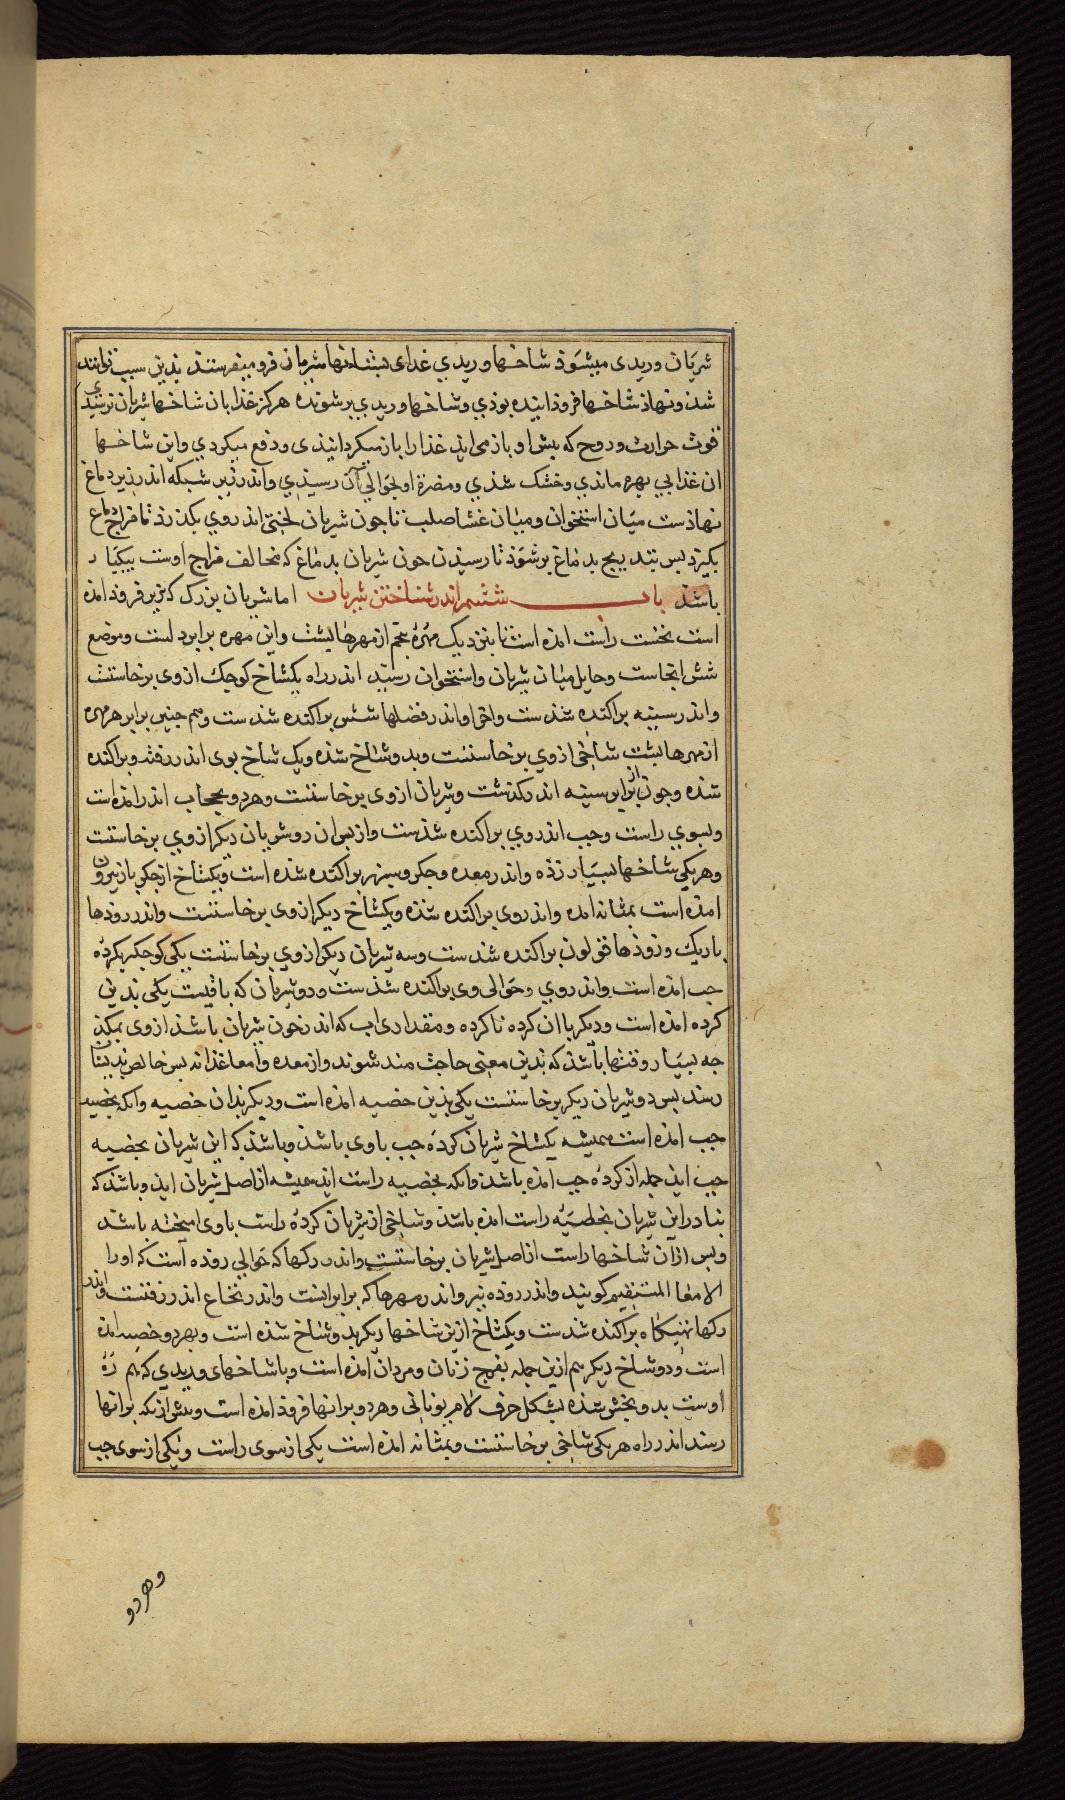 شریان وریدی میشود شاخها وریدی غذای شاخها شریان فرو میفرستند بدین سبب توانند
شدن ونهاذ شاخها فروذ اینده بوذی وشاخها وریدی برشونده هرکز غذا بان شاخها شریان نرسیدی
قوت حرارت وروح که بیش او بازمی اید غذا را باز میکردانیدی ودفع میکردی واین شاخها
ان غذا بی بهره ماندی وخشک شذی ومضرة او بحوالی آن رسیدی واندر زیر شبکه اندر زیر دماغ
نهاذست میان استخوان ومیان غشا صلب تا جون شریان لختی اندر وی بکذرذ تا مزاج دماغ
بکیرد بس بتدریج بدماغ برشوذ تا رسیدن خون شریان بدماغ که مخالف مزاج اوست بیکبار
باشذ باب ششم اندر شناختن شریان اما شریان بزرک که بزیر فروذ امذه
است نخست راست امذه است تا بنزدیک مهرۀ بنجم از مهرها پشت واین مهره برابر دلست وموضع
شش انجاست وحایل میان شریان واستخوان رسید اندر راه یکشاخ کوجک ازوی برخاستست
واندر سینه براکنده شذست واجزا واندر فضلها شش براکنده شذست وهم جنین برابر هر مهره
از مهرها پشت شاخی ازوی برخاستست وبدو شاخ شذه ویک شاخ بوی اندر رفته وبراکنده
شده وجون از برابر سینه اندر کذشت وشریان ازوی برخاستست وهردو بحجاب اندر امذه است
وبسوی راست وجب اندروی براکنده شذست وازبس ان دو شریان دیکر ازوی برخاستست
وهریکی شاخها بسیار زذه واندر معده وجکر وسپرز براکنده شذه است ویکشاخ ازجکر باز بیرون
امذه است بمثانه امده واندروی براکنده شذه ویکشاخ دیکر ازوی برخاستست واندر روذها
باریک وروذها قولون براکنده شذست وسه شریان دیکر ازوی برخاستست یکی کوجکتر بکرده
جب امذه است واندروی وحوالی وی براکنده شذست ودو شریان که باقیست یکی بدین
کرده امذه است ودیکر با ان کرده تا کرده ومقداری اب که اندر خون شریان باشذ ازوی بمکذ
جه بسیار وقتها باشذ که بدین معنی حاجت مند شوند واز معده وامعا غذا نه بس خالص بدیشان
رسد بس دو شریان دیکر برخاستست یکی بذین خصیه امذه است ودیکر بذان خصیه وانکه بخصیه
جب امذه است همیشه یکشاخ شریان کرده جب با وی باشذ وباشذ که این شریان بخصیه
جب این جمله از کردۀ جب امذه باشذ وانکه بخصیه راست اید همیشه از اصل شریان اید وباشذ که
بنادر این شریان بخصیۀ راست امده باشذ وشاخی از شریان کردۀ راست با وی امیخته باشد
وبس ازآن شاخها راست از اصل شریان برخاستست واندر رکها که حوالی روده آست که اورا
الامعا المستقیم کویند واندر روده نیز واندر مهرها که برابر اینست واندر نخاع اندر رفتست واندر
رکها تهیکاه براکنده شدست ویکشاخ ازین شاخها دیکر بدو شاخ شذه است وبهردو خصیه امذه
است ودو شاخ دیکر هم ازین جمله بفرج زنان ومردان امذه است وبا شاخهای وریدی که هم رۀ
اوست بدو بخش شذه بشکل حرف لام یونانی وهردو برانها فروذ امذه است وبیش ازانکه برانها
رسد اندر راه هریکی شاخی برخاستست وبمثانه امذه است یکی ازسوی راست ویکی ازسوی جب
وهردو